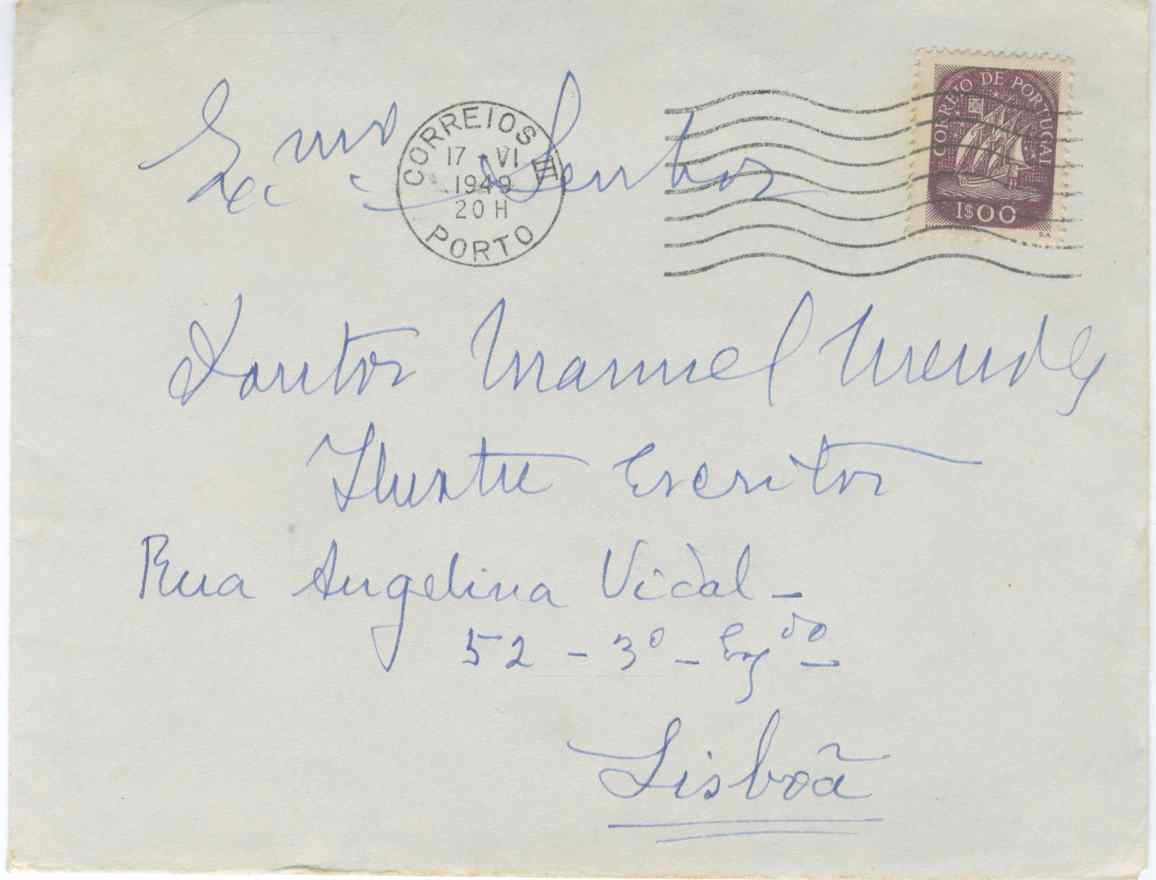 Exmo Senhor
CORREIOS
17 VI
1949
20 H
PORTO
CORREIO DE PORTUGAL
1$00
Doutor Manuel Mendes
Ilustre Escritor
Rua Angelina Vidal -
52 - 3º - Esqdo
Lisboã